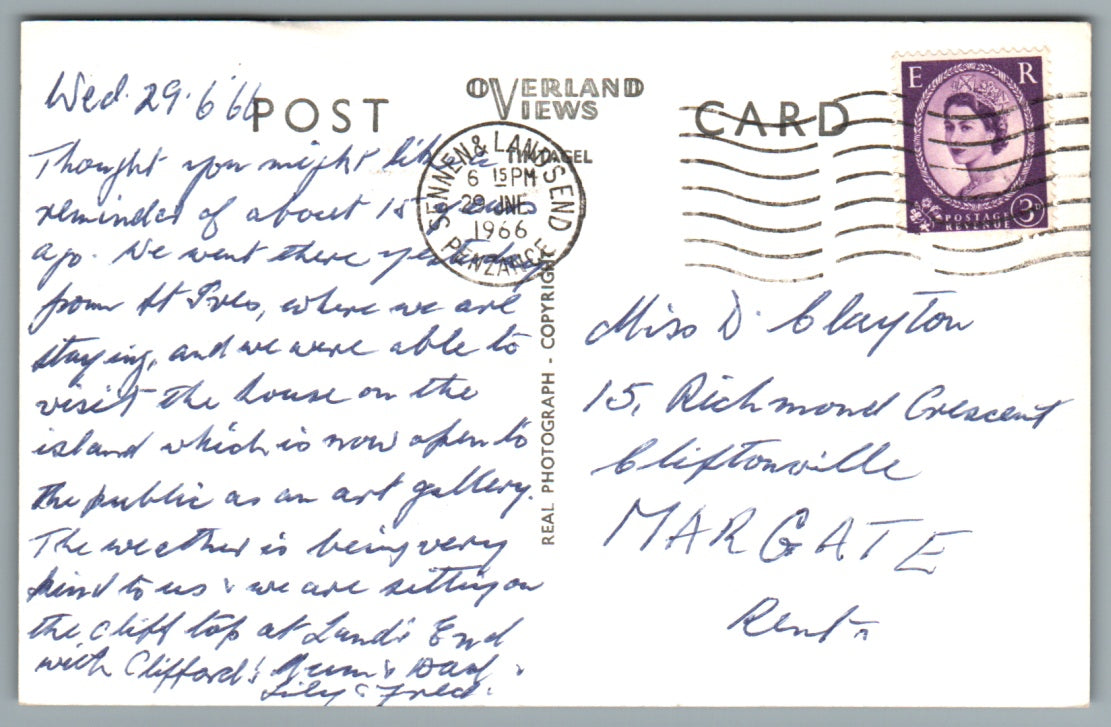 Wed. 29.6.'66
POST
OVERLAND
VIEWS
CARD
TINTAGEL
Thought you might like a
reminder of about 15 years
ago. We went there yesterday
from St Ives, where we are
staying, and we were able to
visit the house on the
island which is now open to
the public as an art gallery.
The weather is being very
kind to us & we are sitting on
the cliff top at Land's End
with Clifford's Mum & Dad.
Lily & Fred.
SENNEN & LANDS END
6 15 PM
29 JNE
1966
PENZANCE
REAL PHOTOGRAPH - COPYRIGHT
E R
POSTAGE
REVENUE
3D
Miss D. Clayton
15, Richmond Crescent
Cliftonville
MARGATE
Kent